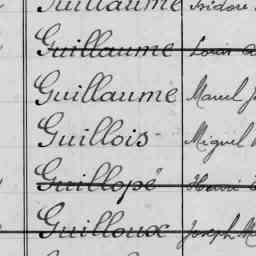 Guillaume Isidore
Guillaume Louis
Guillaume Marcel J
Guillois Miguel
Guillopé Henri
Guilloux Joseph M